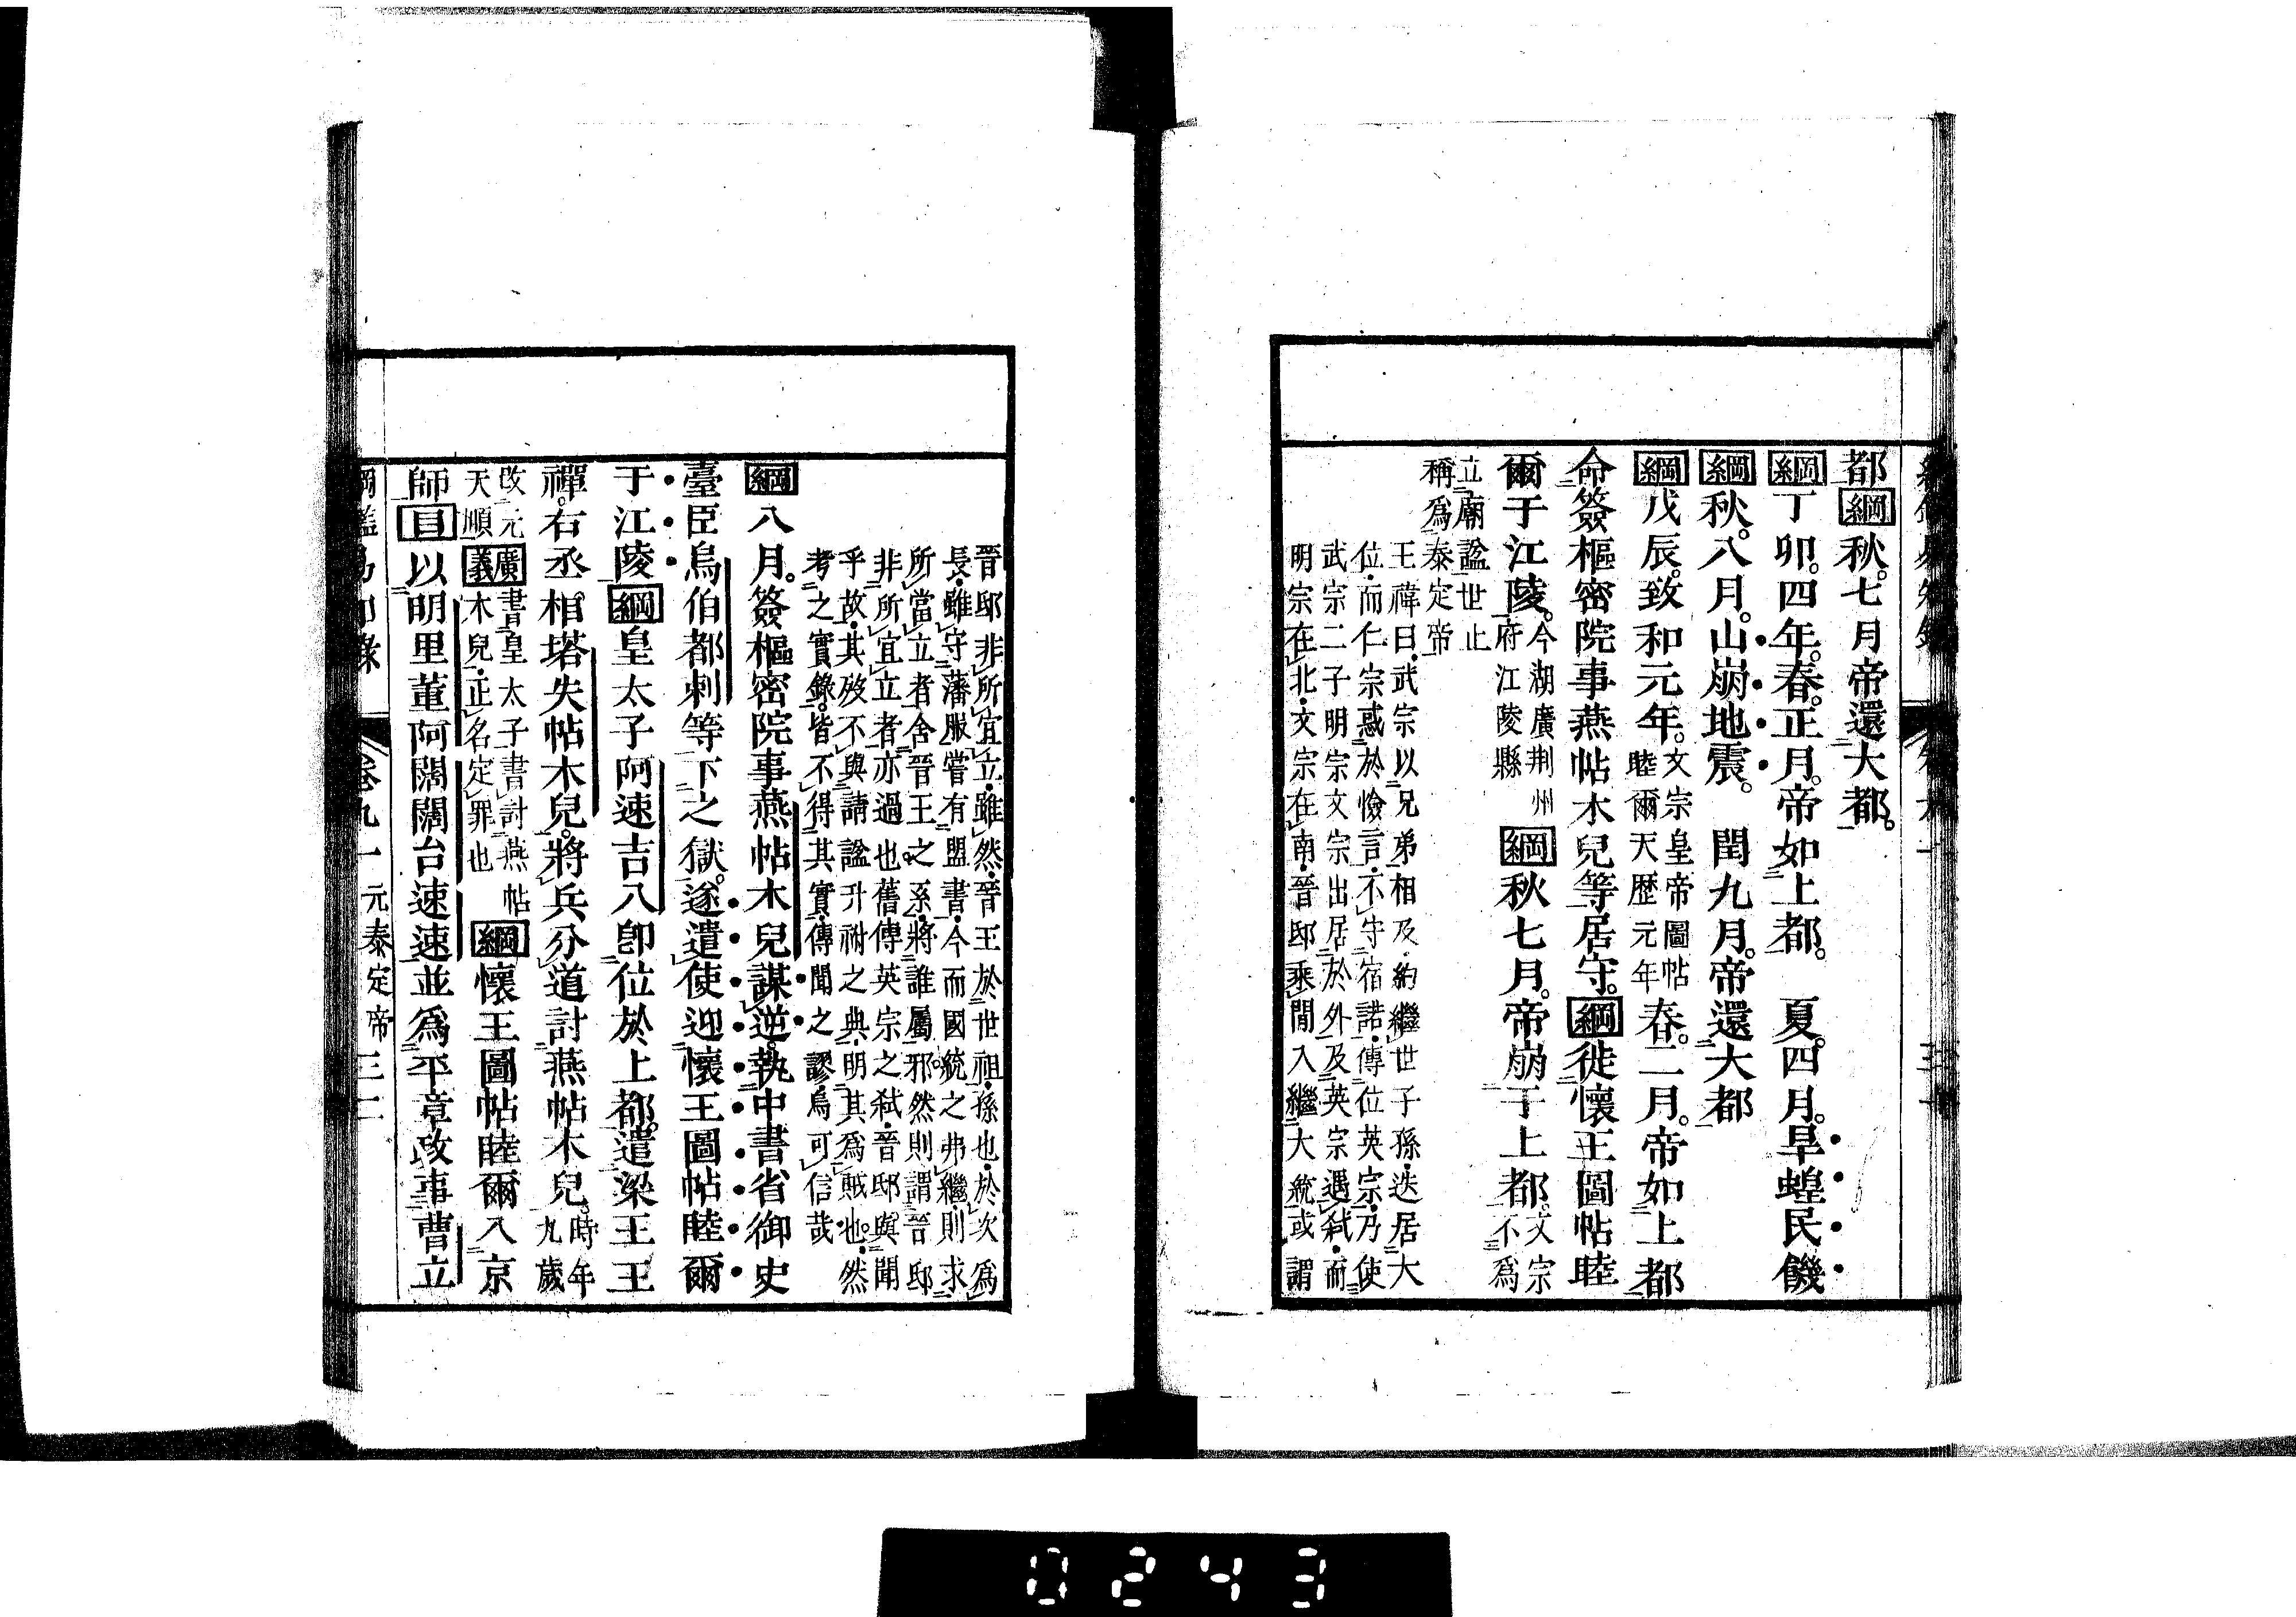 都綱秋。七月帝還大都。
綱丁卯。四年。春。正月。帝如上都。 夏。四月。旱蝗民饑
綱秋。八月。山崩地震。 閏九月。帝還大都
綱戊辰。致和元年。文宗皇帝圖帖
睦爾天歷元年春。二月。帝如上都
命簽樞密院事燕帖木兒等居守。綱徙懷王圖帖睦
爾于江陵。今湖廣荆州
府江陵縣綱秋七月。帝崩于上都。文宗
不爲
立廟諡世止
稱爲泰定帝
王禕曰武宗以兄弟相及約繼世子孫迭居大
位而仁宗惑於憸言不守宿諾傳位英宗乃使
武宗二子明宗文宗出居於外及英宗遇弑而
明宗在北文宗在南晉邸乘閒入繼大統或謂
晉邸非所宜立雖然晉王於世祖孫也於次爲
長雖守藩服嘗有盟書今而國統之弗繼則求
所當立者舍晉王之系將誰屬邪然則謂晉邸
非所宜立者亦過也舊傳英宗之弑晉邸與聞
乎故其歿不與請諡升祔之典明其爲賊也然
考之實錄皆不得其實傳聞之謬烏可信哉
綱八月。簽樞密院事燕帖木兒謀逆。執中書省御史
臺臣烏伯都刺等下之獄。遂遣使迎懷王圖帖睦爾
于江陵綱皇太子阿速吉八卽位於上都。遣梁王王
禪。右丞相塔失帖木兒。將兵分道討燕帖木兒。時年
九歲
改元
天順廣義書皇太子書討燕帖
木兒正名定罪也綱懷王圖帖睦爾入京
師目以明里董阿闊闊台速速並爲平章政事曹立
卷九一 元泰定帝 三二